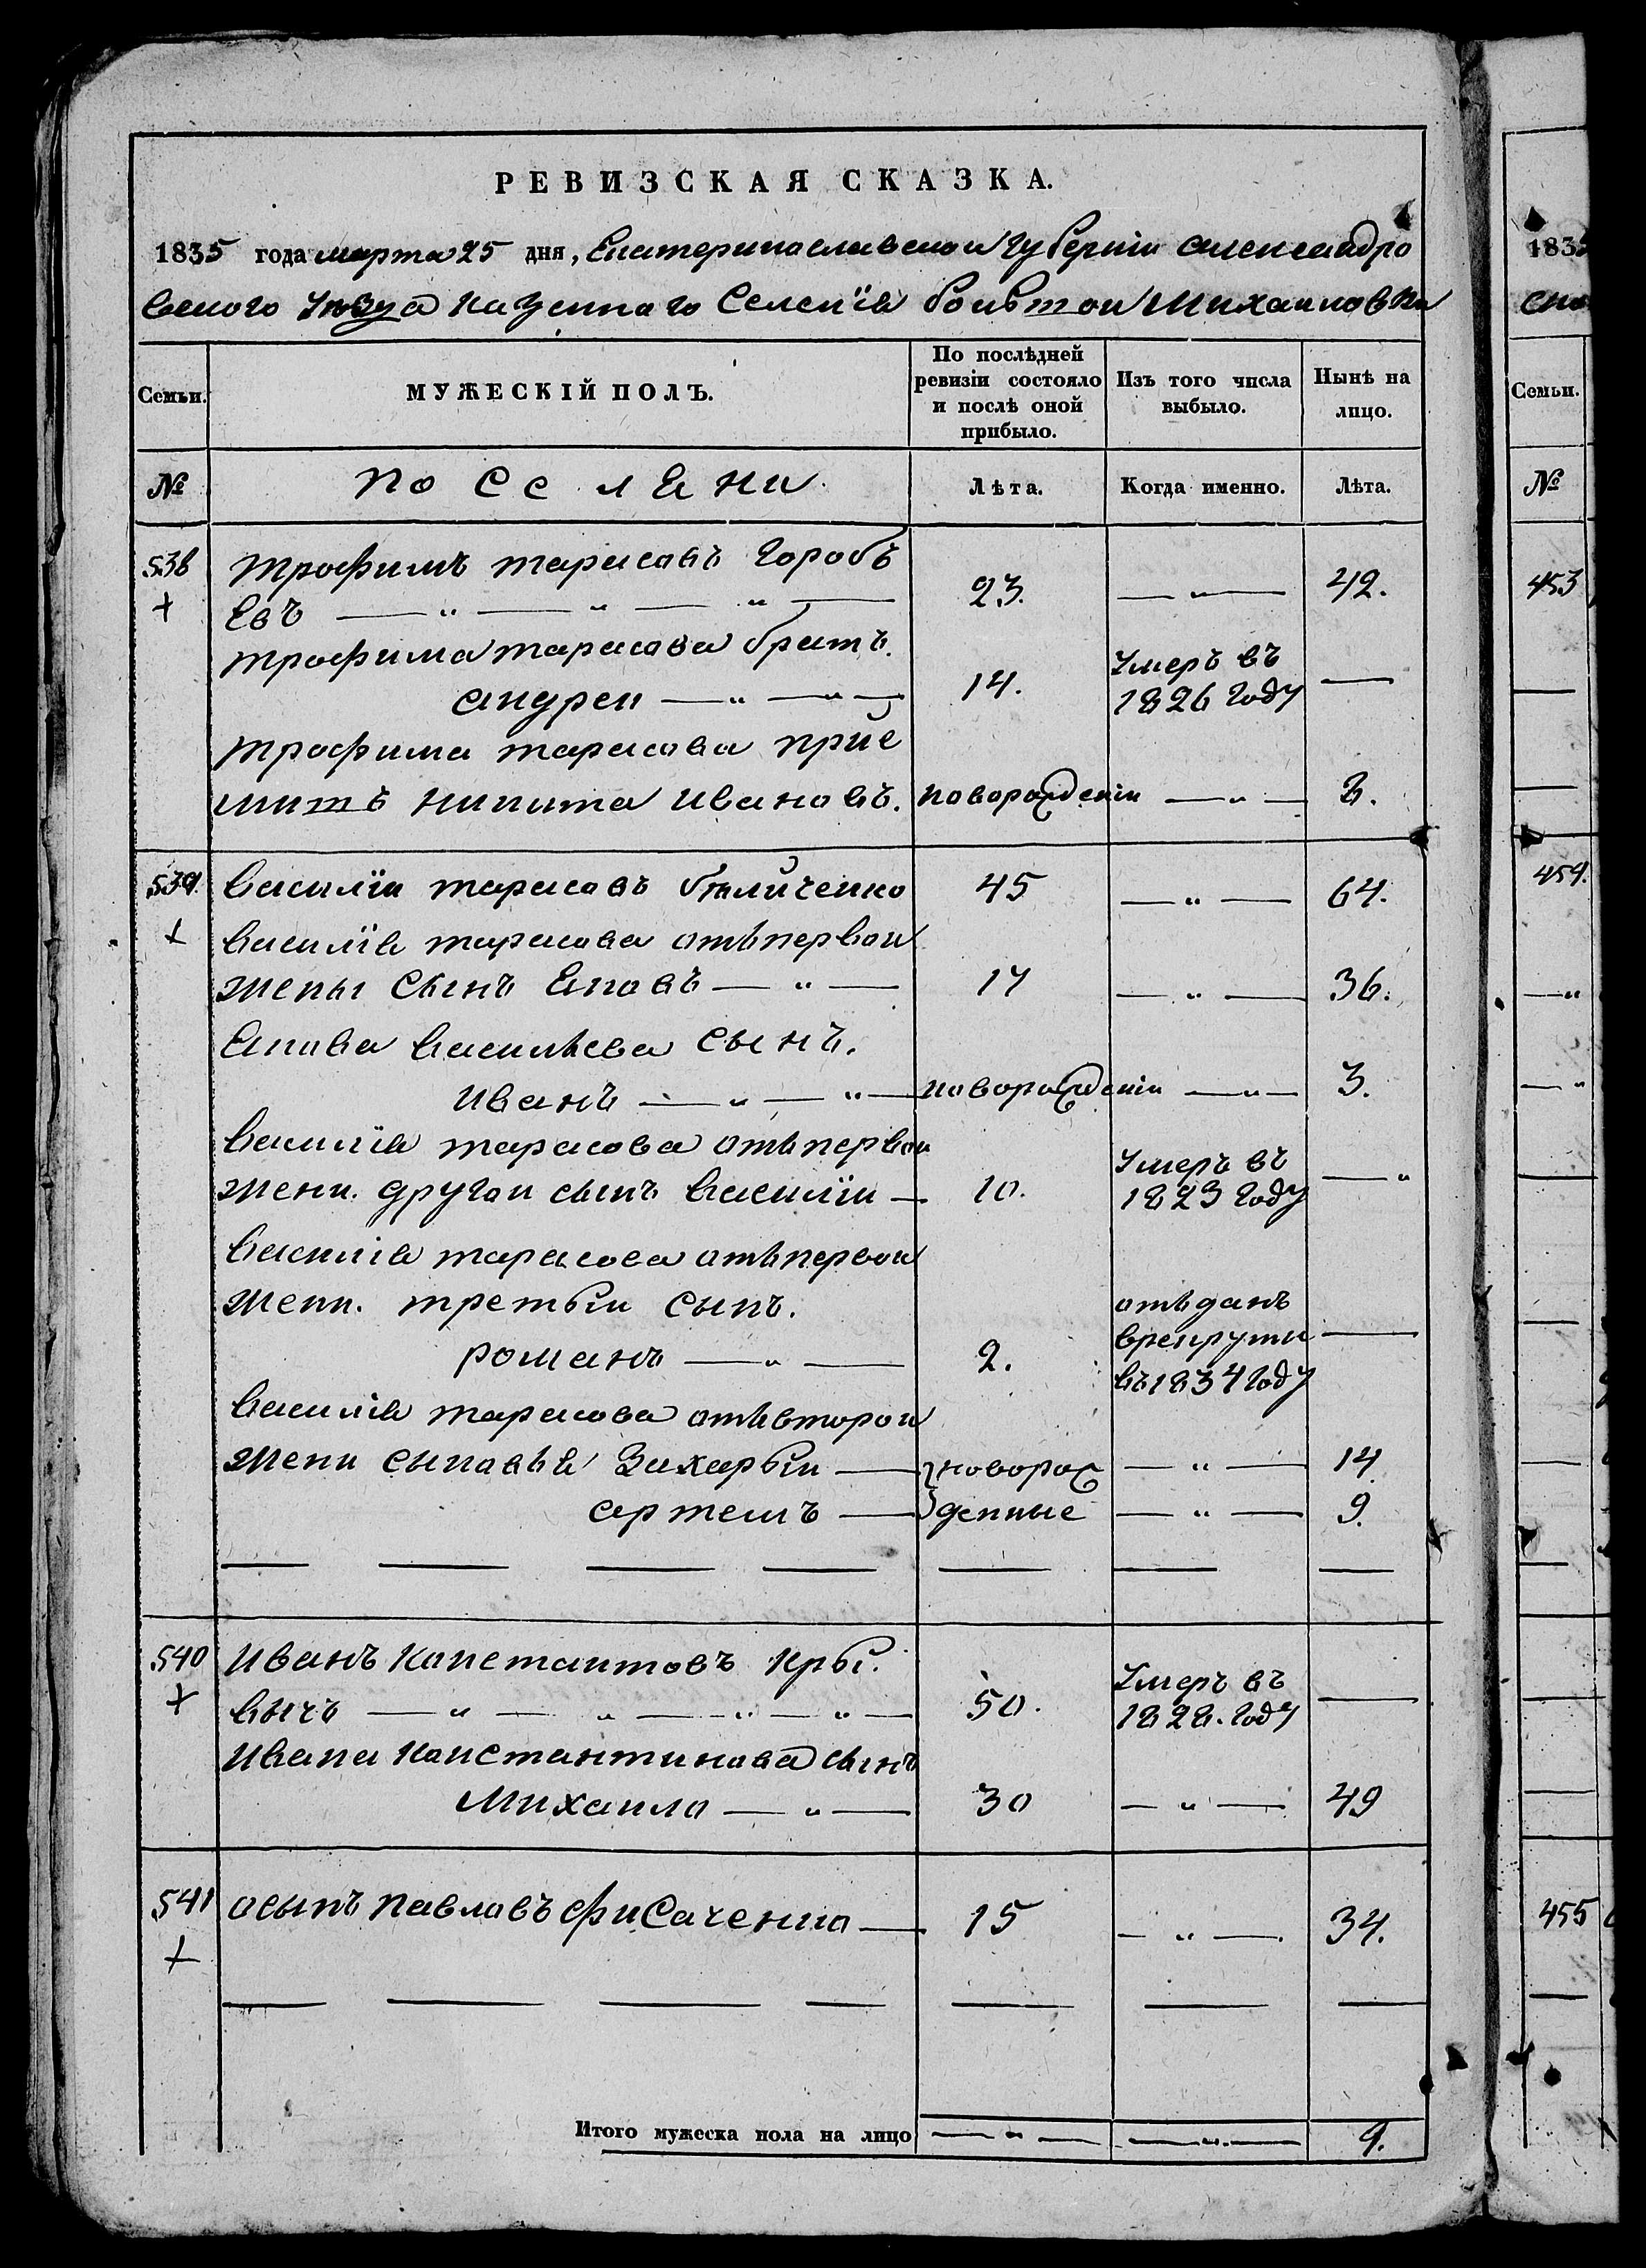 РЕВИЗСКАЯ СКАЗКА.
1835 года марта 25 дня, Екатеринославской Губерніи Александро
вского Уѣзда Казенного Селенія Большой Михайловки
Семьи. МУЖЕСКІЙ ПОЛЪ. По послѣдней ревизіи состояло и послѣ оной прибыло. Изъ того числа выбыло. Нынѣ на лицо.
№ поселяни Лѣта. Когда именно. Лѣта.
538 Трофимъ Тарасовъ Горобъ
+ евъ — " — " — " — 23. — " — 42.
Трофима Тарасова братъ.
Андрей — " — " — 14. Умеръ въ 1826 Году —
Трофима Тарасова прие
мишъ Никита Ивановъ. новорожденій — " — 8.
539. Василій Тарасовъ Бѣличенко 45 — " — 64.
+ Василія Тарасова отъ первой
жены сынъ Елавъ — " — 17 — " — 36.
Елава Васильева сынъ.
Иванъ — " — " — новорожденій — " — 3.
Василія Тарасова отъ первой
жени. другой сынъ Василій — 10. Умеръ въ 1823 Году — "
Василія Тарасова отъ первой
жени. третьій сынъ.
Романъ — " — 2. отъданъ врекруты въ 1834 Году —
Василія Тарасова отъ второй
жени сыновья Захарьій — новорож — " — 14
Артемъ — денные — " — 9.
540 Иванъ Константиновъ Кры.
+ вычъ — " — " — " — " — 50. Умеръ въ 1828. Году —
Ивана Константинова сынъ
Михайло — " — 30 — " — 49
541 Осыпъ Павловъ Фисаченко — 15 — " —. 34.
+
Итого мужеска пола на лицо — " — — " — 9.
1835
Семьи.
№
453
454.
455